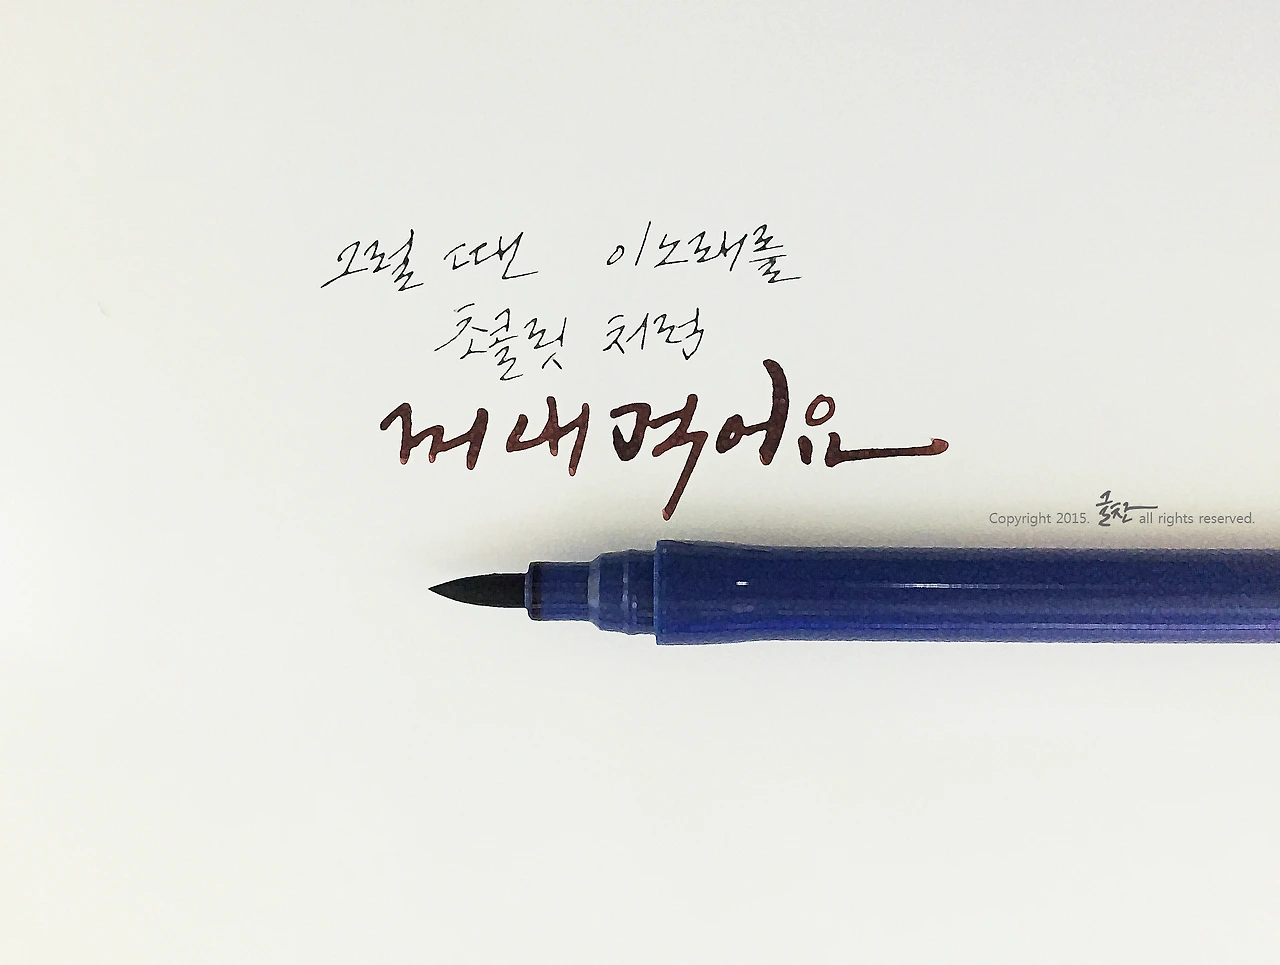 그럴 땐 이 노래를
초콜릿 처럼
꺼내 먹어요
Copyright 2015. 글잔 all rights reserved.